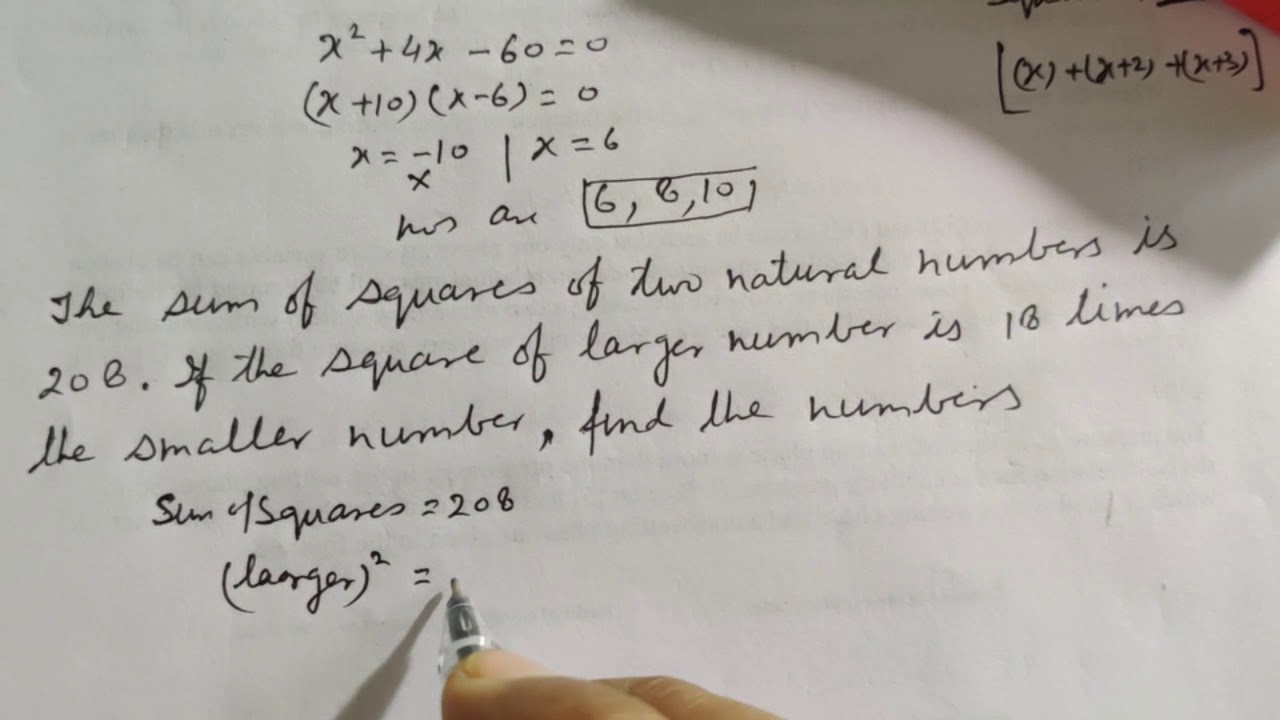 x² + 4x - 60 = 0
(x + 10) (x - 6) = 0
x = -10 | x = 6
x
nos are 6, 8, 10,
[(x) + (x+2) + (x+3)]
The sum of squares of two natural numbers is
208. If the square of larger number is 18 times
the smaller number, find the numbers
Sum of Squares = 208
(laorger)² =